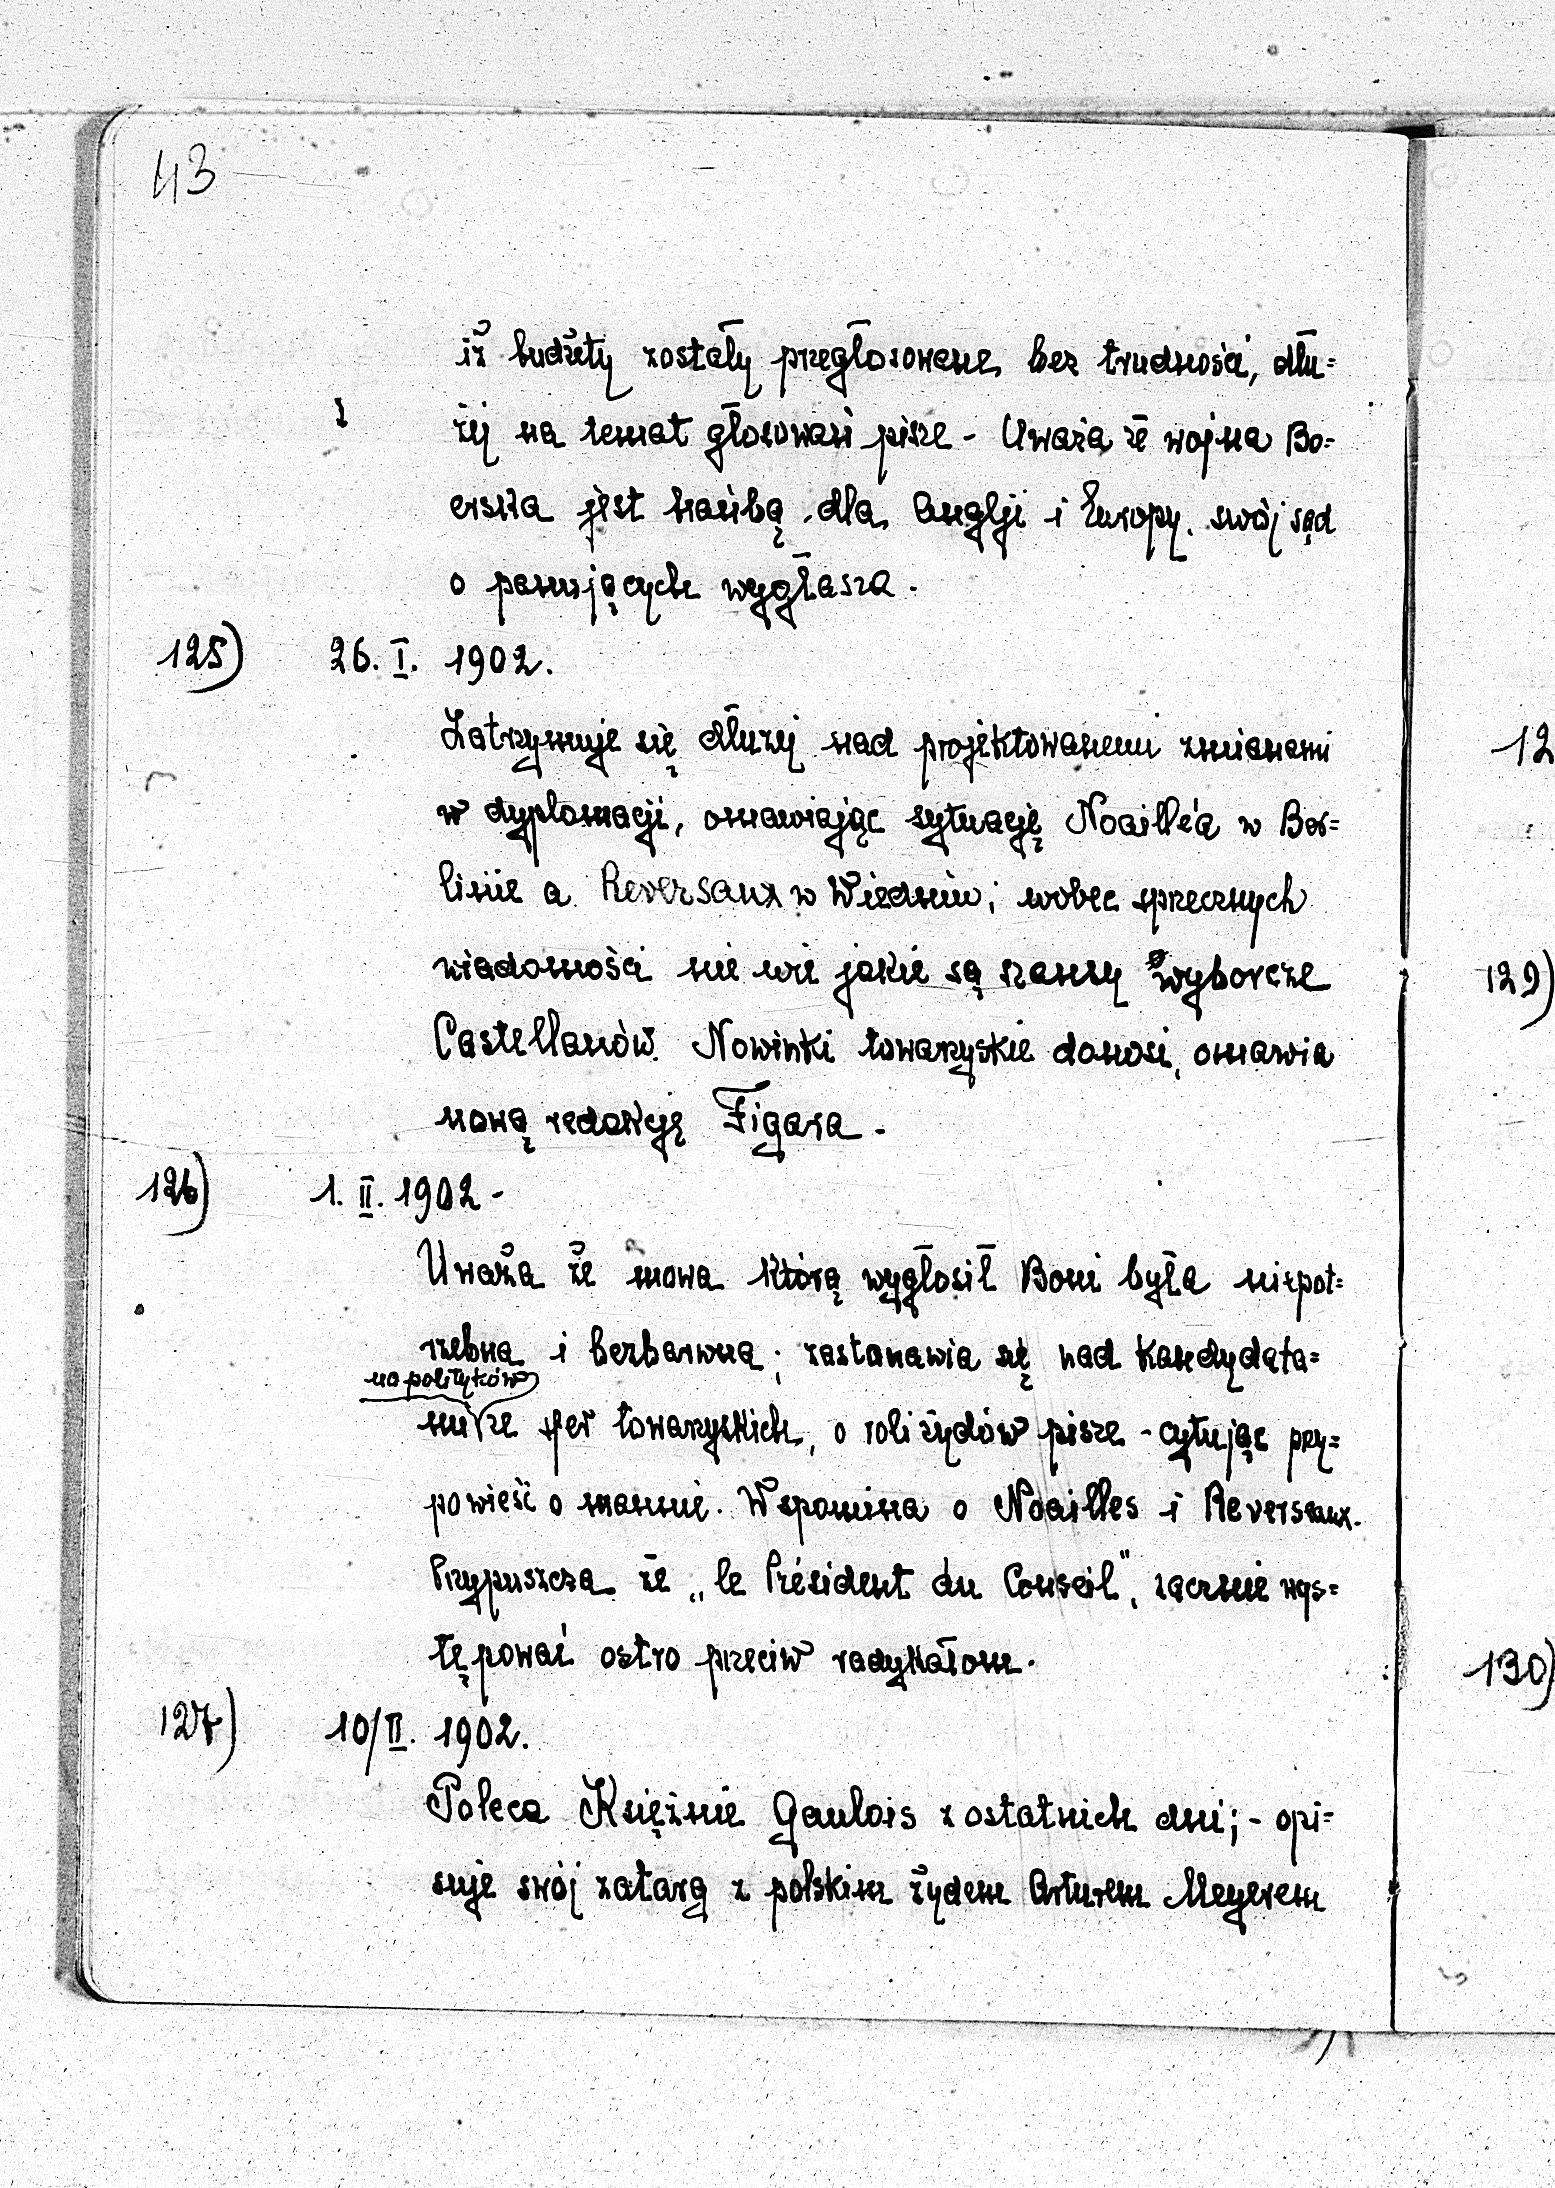 43
iż budżety zostały przegłosowane bez trudności, dłu=
żej na temat głosowań pisze - Uważa że wojna Bo=
erska jest hańbą dla Anglji i Europy. swój sąd
o panujących wygłasza.
125) 26. I. 1902.
Zatrzymuje się dłużej nad projektowanemi zmianami
w dyplomacji, omawiając sytuację Noaille'a w Ber=
linie a Reversaux w Wiedniu; wobec sprzecznych
wiadomości nie wie jakie są szansy wyborcze
Castellanów. Nowinki towarzyskie donosi, omawia
nową redakcję Figara -
126) 1. II. 1902 -
Uważa że mowa którą wygłosił Boni była niepot=
rzebna i bezbarwna; zastanawia się nad kandydata=
na polityków
mi ze sfer towarzyskich, o roli żydów pisze - cytując przy=
powieść o mannie. Wspomina o Noailles i Reverseaux.
Przypuszcza że „le Président du Conseil", zacznie wys=
tępować ostro przeciw radykałom.
127) 10/II. 1902.
Poleca Księżnie Gaulois z ostatnich dni; - opi=
suje swój zatarg z polskim żydem Arturem Meyerem
12
129)
130)